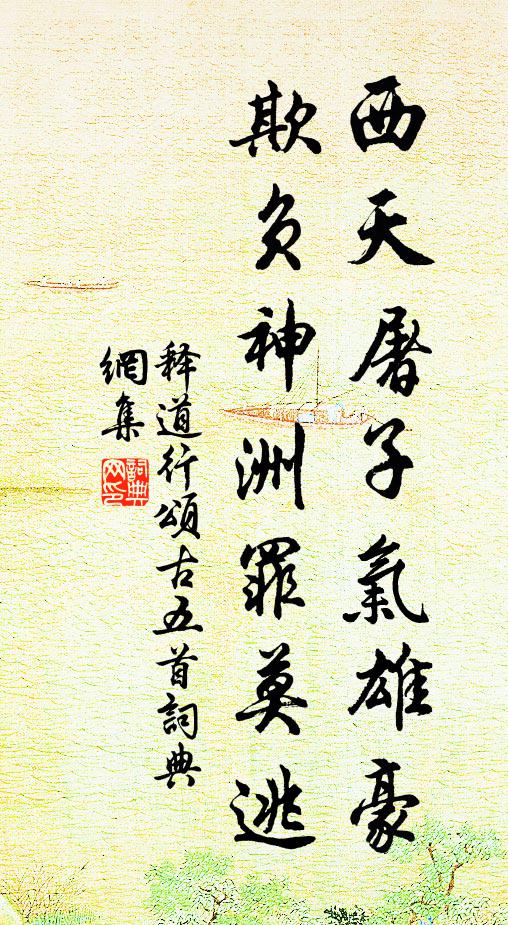 西天屠子氣雄豪
欺負神洲罪莫逃
释道行頌古五首詞典
網集
詞典
网印